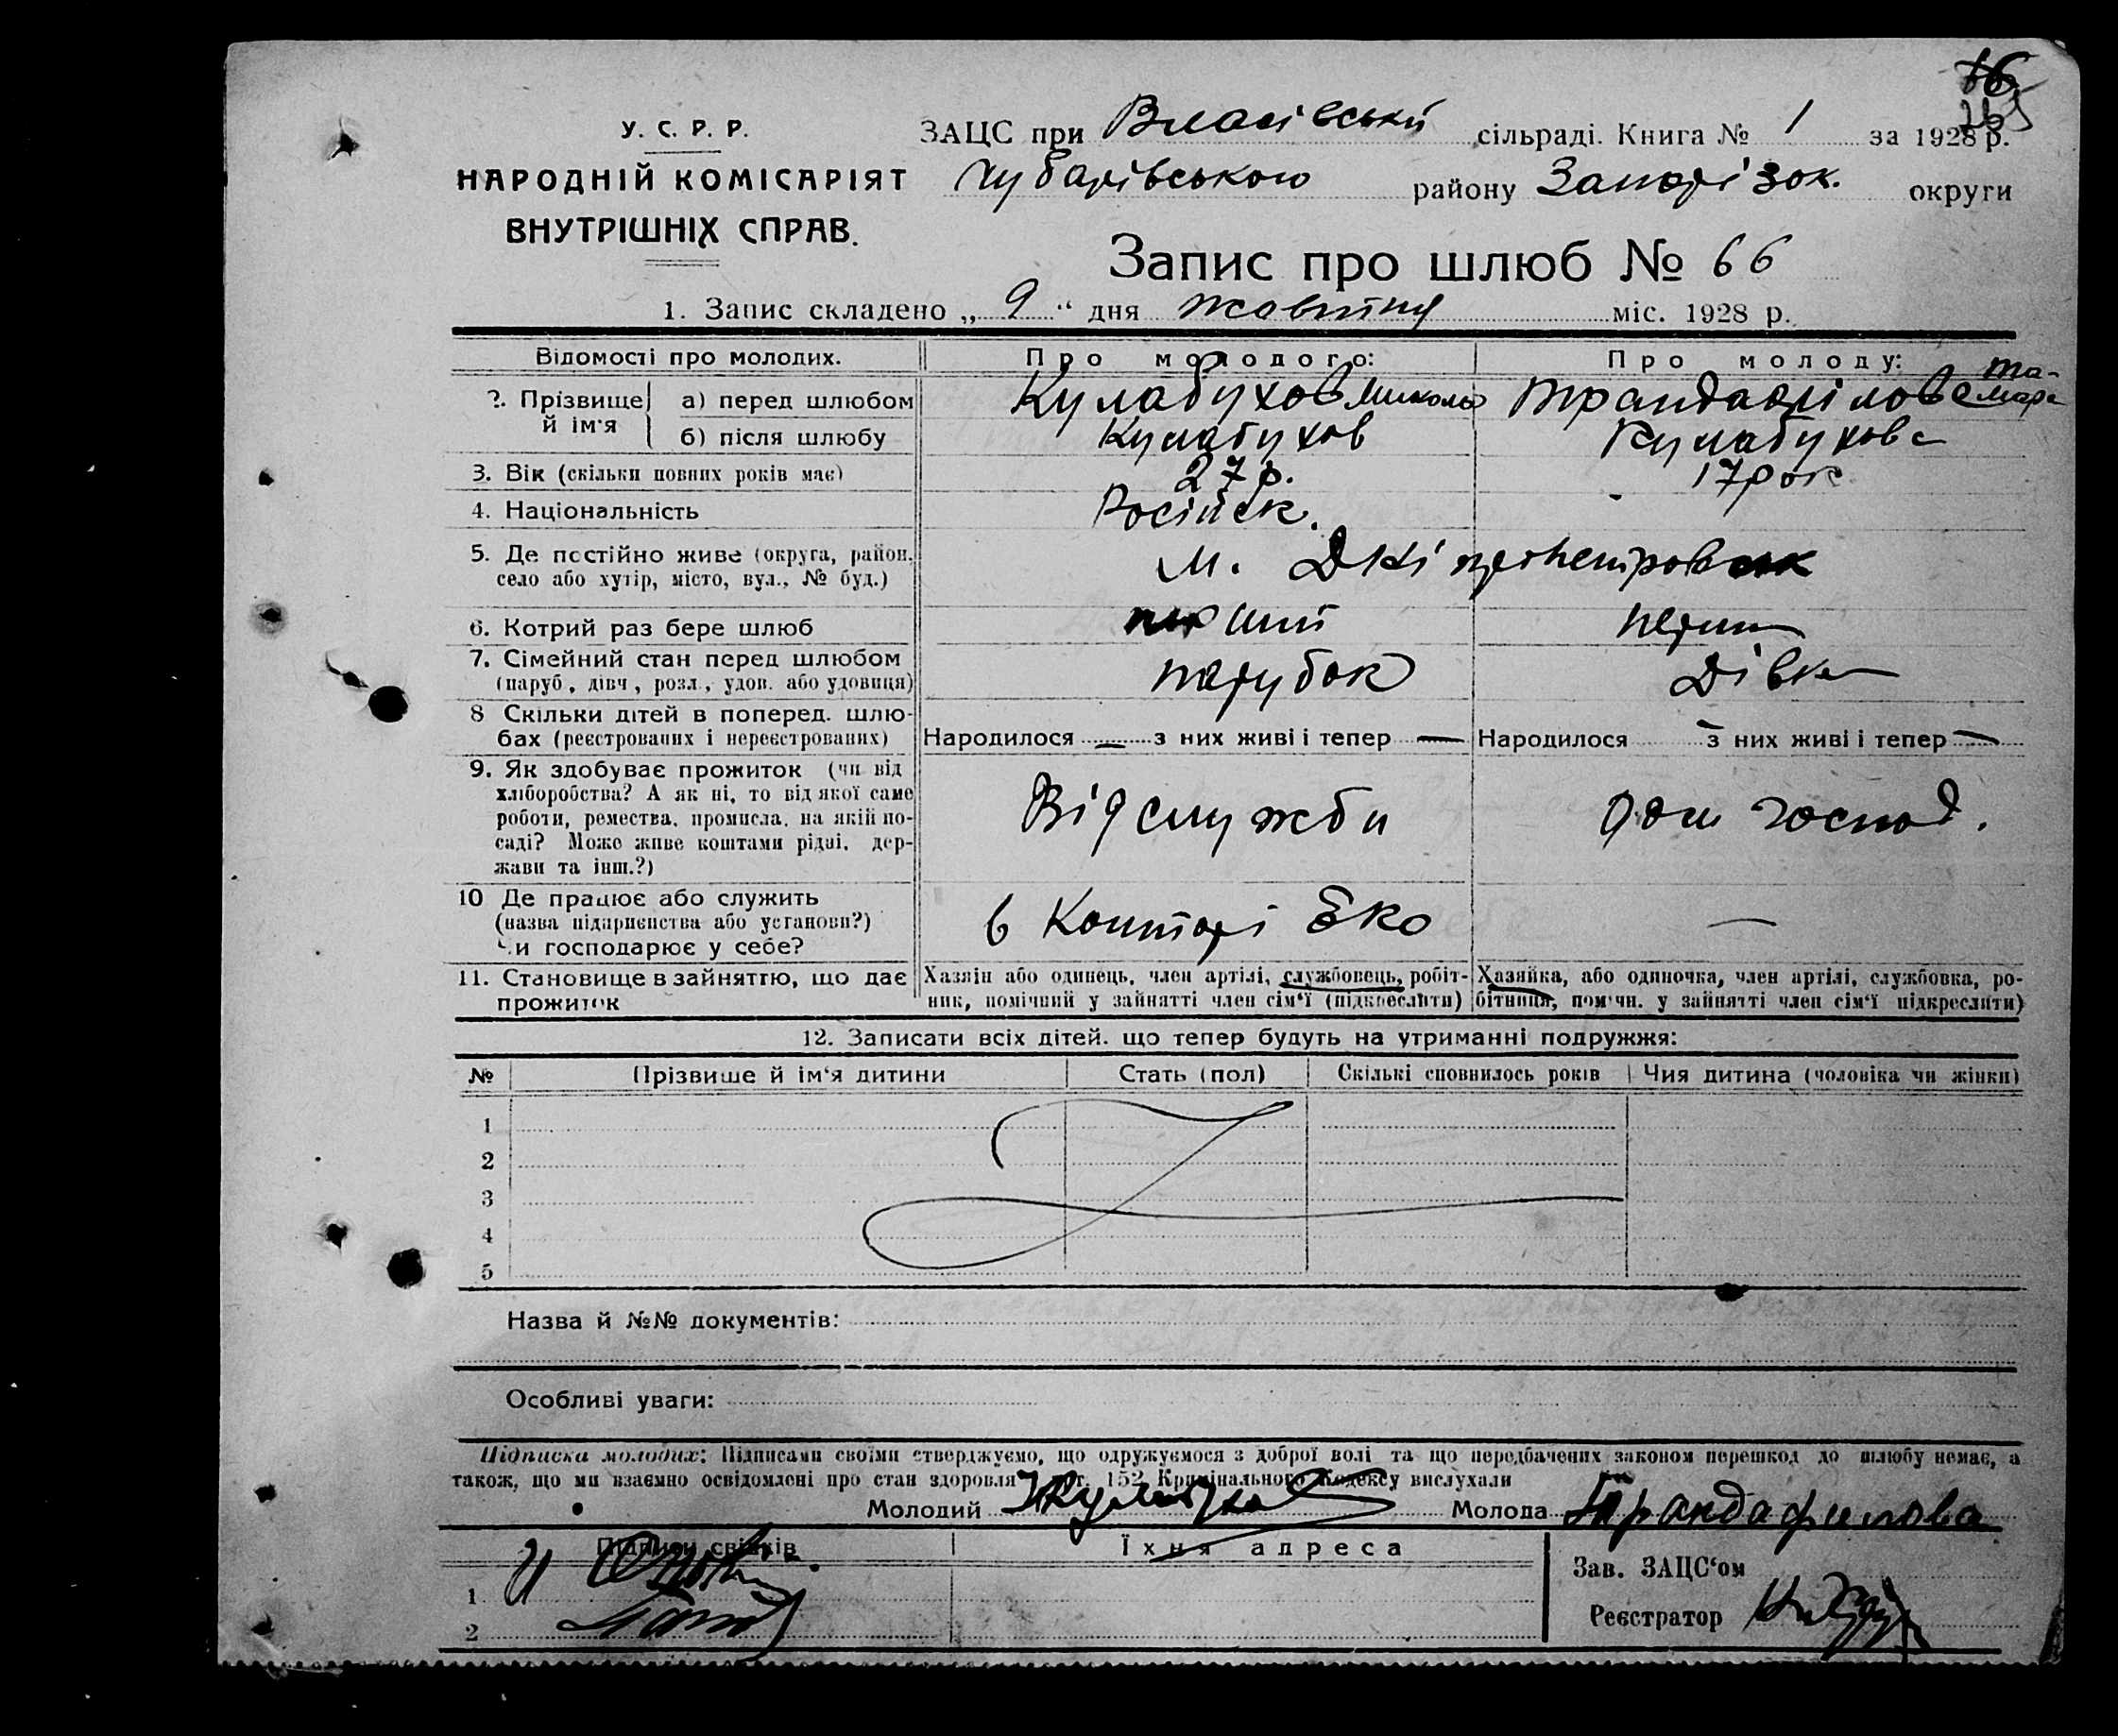 76
У. С. Р. Р.
НАРОДНІЙ КОМІСАРІЯТ
ВНУТРІШНІХ СПРАВ.
ЗАЦС при Власівській сільраді. Книга № 1 за 1928 р.
Чубарівського району Запорізьк. округи
Запис про шлюб № 66
1. Запис складено „ 9 “ дня жовтня міс. 1928 р.
Відомості про молодих. Про молодого: Про молоду:
2. Прізвище й ім'я а) перед шлюбом Кулабухов Микола Трандафілова Тамара
б) після шлюбу Кулабухов Кулабухова
3. Вік (скільки повних років має) 27 р. 17 рок
4. Національність Російск.
5. Де постійно живе (округа, район, м. Дніпропетровськ
село або хутір, місто, вул., № буд.)
6. Котрий раз бере шлюб перший перш
7. Сімейний стан перед шлюбом парубок Дівка
(паруб., дівч., розл., удов. або удовиця)
8 Скільки дітей в поперед. шлю-
бах (реєстрованих і нереєстрованих) Народилося — з них живі і тепер — Народилося — з них живі і тепер —
9. Як здобуває прожиток (чи від
хліборобства? А як ні, то від якої саме
роботи, ремества, промисла, на якій по- Від служби дом господ.
саді? Може живе коштами рідні, дер-
жави та інш.?)
10 Де працює або служить
(назва підприємства або установи?) в Конторі Еко —
Чи господарює у себе?
11. Становище в зайняттю, що дає Хазяїн або одинець, член артілі, службовець, робіт- Хазяйка, або одиночка, член артілі, службовка, ро-
прожиток ник, помічний у зайнятті член сім'ї (підкреслити) бітниця, помічн. у зайнятті член сім'ї підкреслити)
12. Записати всіх дітей, що тепер будуть на утриманні подружжя:
№ Прізвище й ім'я дитини Стать (пол) Скількі сповнилось років Чия дитина (чоловіка чи жінки)
1
2
3
4
5
Назва й №№ документів:
Особливі уваги:
Підписка молодих: Підписами своїми стверджуємо, що одружуємося з доброї волі та що передбачених законом перешкод до шлюбу немає, а
також, що ми взаємно освідомлені про стан здоровля ст. 152 Кримінального Кодексу вислухали
Молодий Молода Трандафилова
Підписи свідків Їхня адреса
Зав. ЗАЦС‘ом
1
Реєстратор
2